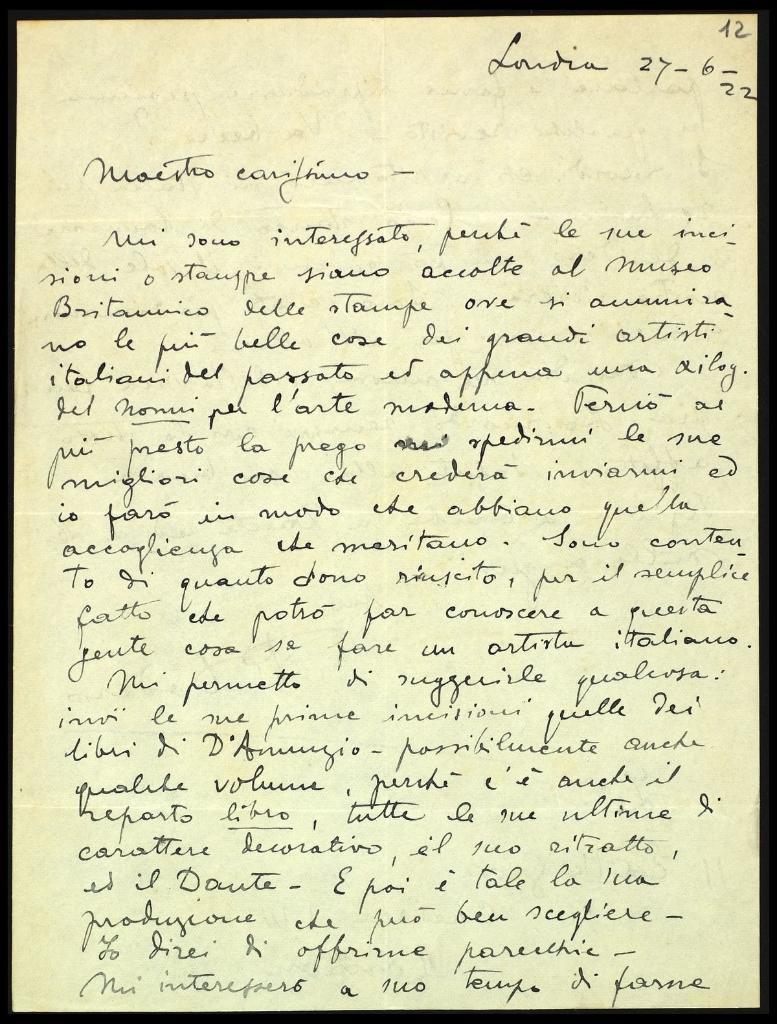 12
Londra 27-6-22
Maestro carissimo -
Mi sono interessato, perchè le sue inci-
sioni o stampe siano accolte al Museo
Britannico delle stampe ove si ammira-
no le più belle cose dei grandi artisti
italiani del passato ed appena una xilog.
del Nonni per l'arte moderna. Perciò al
più presto la prego spedirmi le sue
migliori cose che crederà inviarmi ed
io farò in modo che abbiano quella
accoglienza che meritano. Sono conten-
to di quanto sono riuscito, per il semplice
fatto che potrò far conoscere a questa
gente cosa sa fare un artista italiano.
Mi permetto di suggerirle qualcosa:
invii le sue prime incisioni quelle dei
libri di D'Annunzio - possibilmente anche
qualche volume, perchè c'è anche il
reparto libro, tutte le sue ultime di
carattere decorativo, il suo ritratto,
ed il Dante - E poi è tale la sua
produzione che può ben scegliere -
Io direi di offrirne parecchie -
Mi interesserò a suo tempo di farne